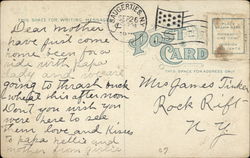 THIS SPACE FOR WRITING MESSAGES
POST
CARD
THIS SPACE FOR ADDRESS ONLY
Dear mother
have just come
home from a
ride with papa
lady and we are
going to thrash buck
wheat this afternoon
Don't you wish you
were here to see
them love and kisses
to papa nellie and
mother from
Mrs James
Rock Rift
N Y